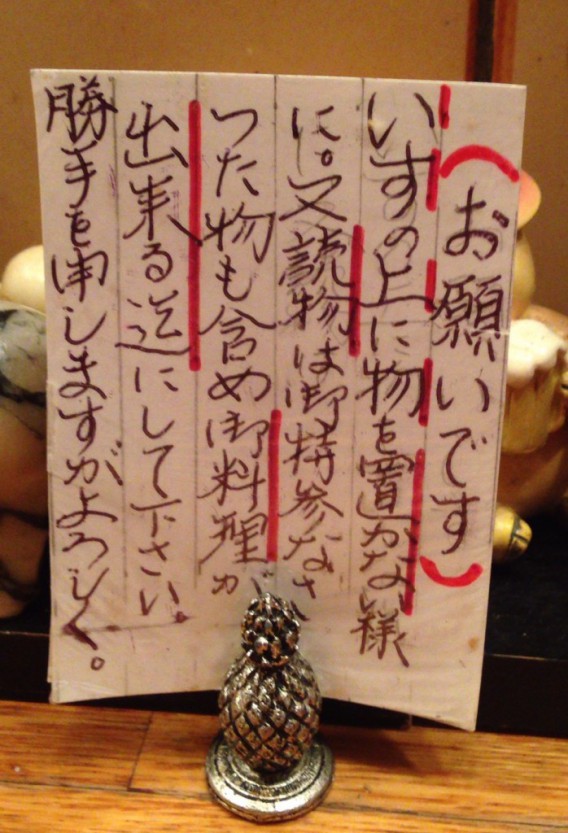 (お願いです)
いすの上に物を置かない様
に。又読物は御持参なさ
つた物も含め御料理が
出来る迄にして下さい。
勝手を申しますがよろしく。